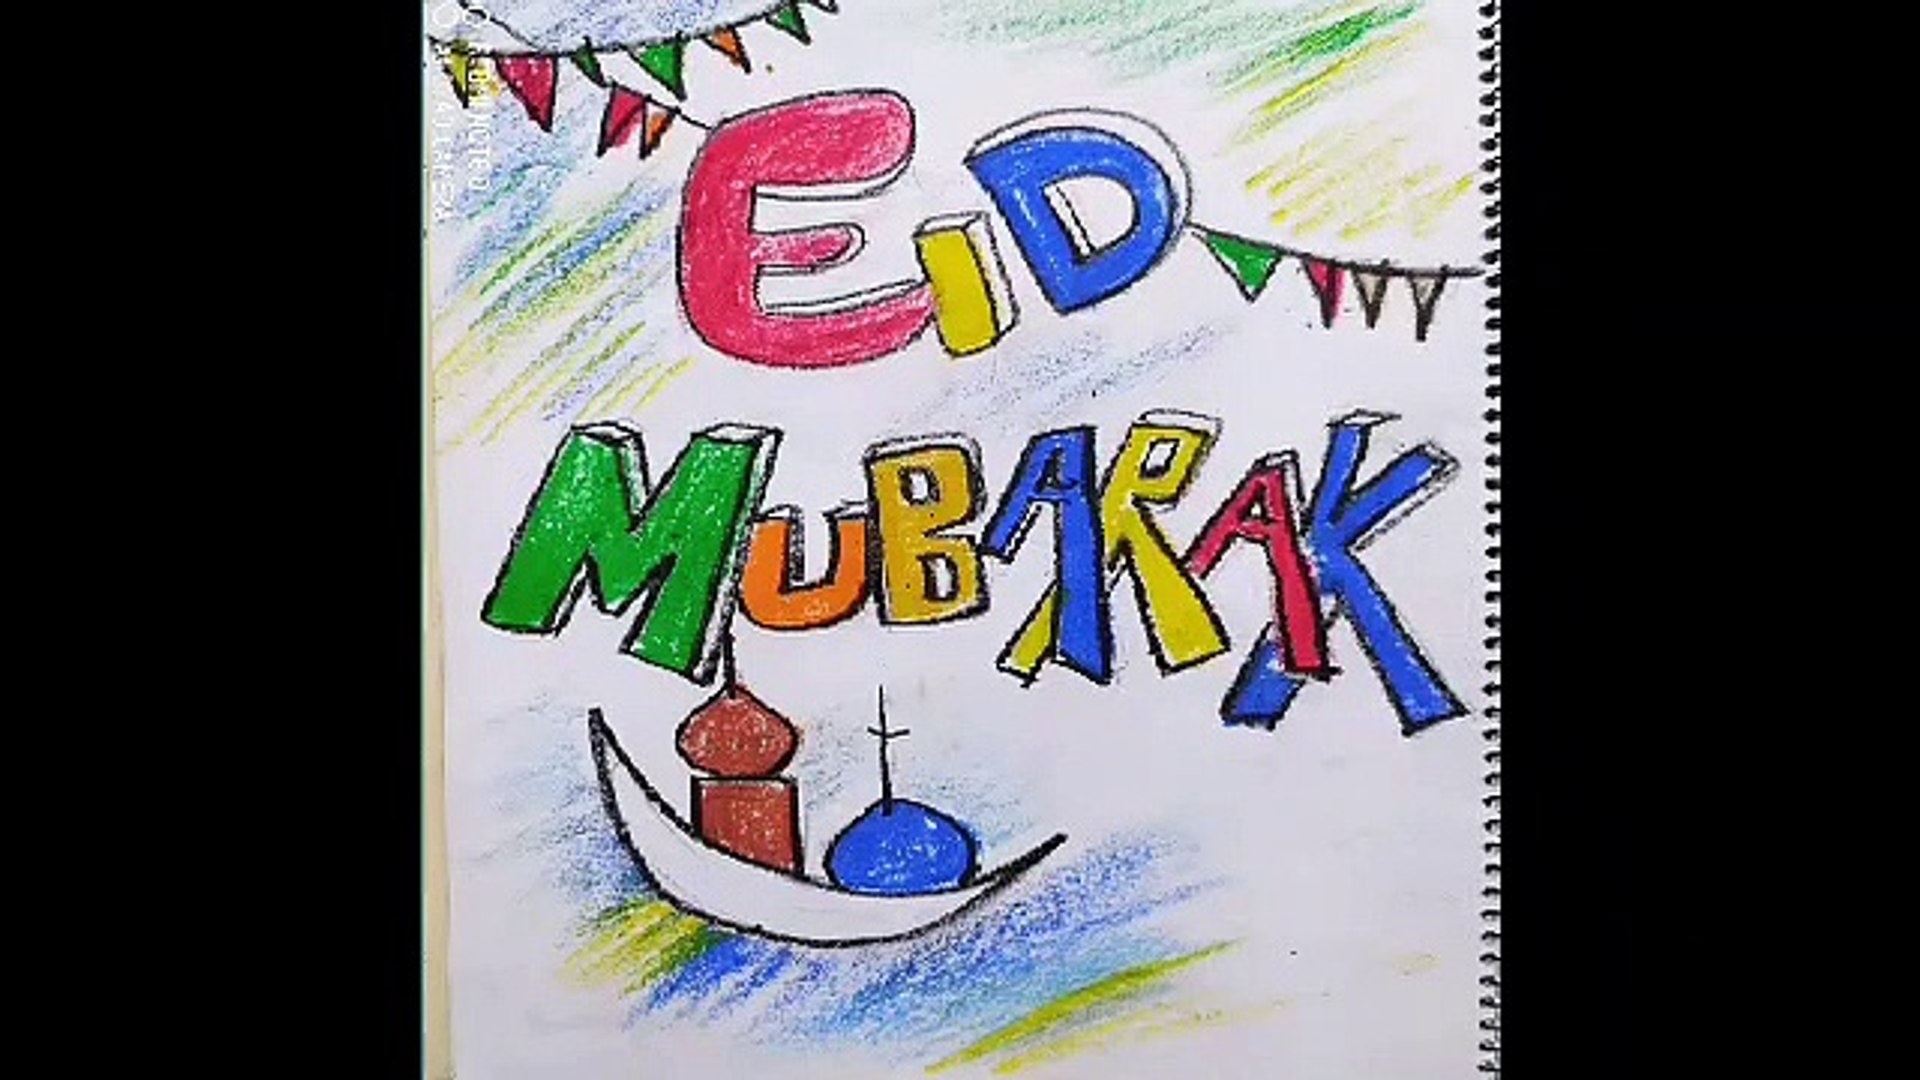 EiD
MUBARAK